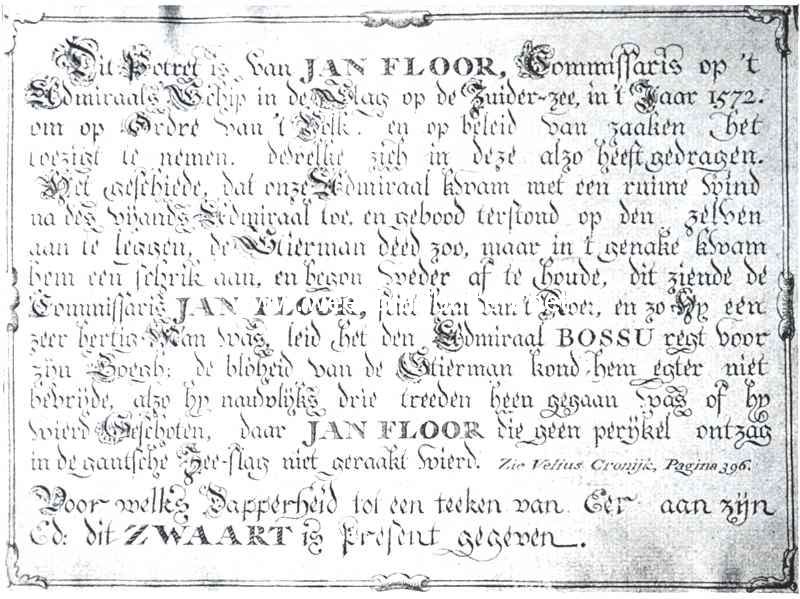 Dit Potret is van JAN FLOOR, Commissaris op 't
Admiraals Schip in de Slag op de Zuider-zee, in 't Jaar 1572.
om op Ordre van 't Volk. en op beleid van zaaken het
toezigt te nemen. dewelke zich in deze alzo heeft gedragen.
Het geschiede, dat onze Admiraal kwam met een ruime wind
na des vyands Admiraal toe, en gebood terstond op den zelven
aan te leggen, de Stierman deed zoo, maar in 't genake kwam
hem een schrik aan, en begon weder af te houde, dit ziende de
Commissaris JAN FLOOR, stiet hem van 't Roer, en zo Hy een
zeer hertig Man was, leid het den Admiraal BOSSU regt voor
zyn Boegh: de blôheid van de Stierman kond hem egter niet
bevryde, alzo hy nauwlyks drie treeden heen gegaan was of hy
wierd Geschoten, daar JAN FLOOR die geen perykel ontzag
in de gantsche Zee-slag niet geraakt wierd. Zie Velius Cronijk, Pagina 396.
Voor welks Dapperheid tot een teeken van Eer aan zijn
Ed: dit ZWAART is Present gegeven.